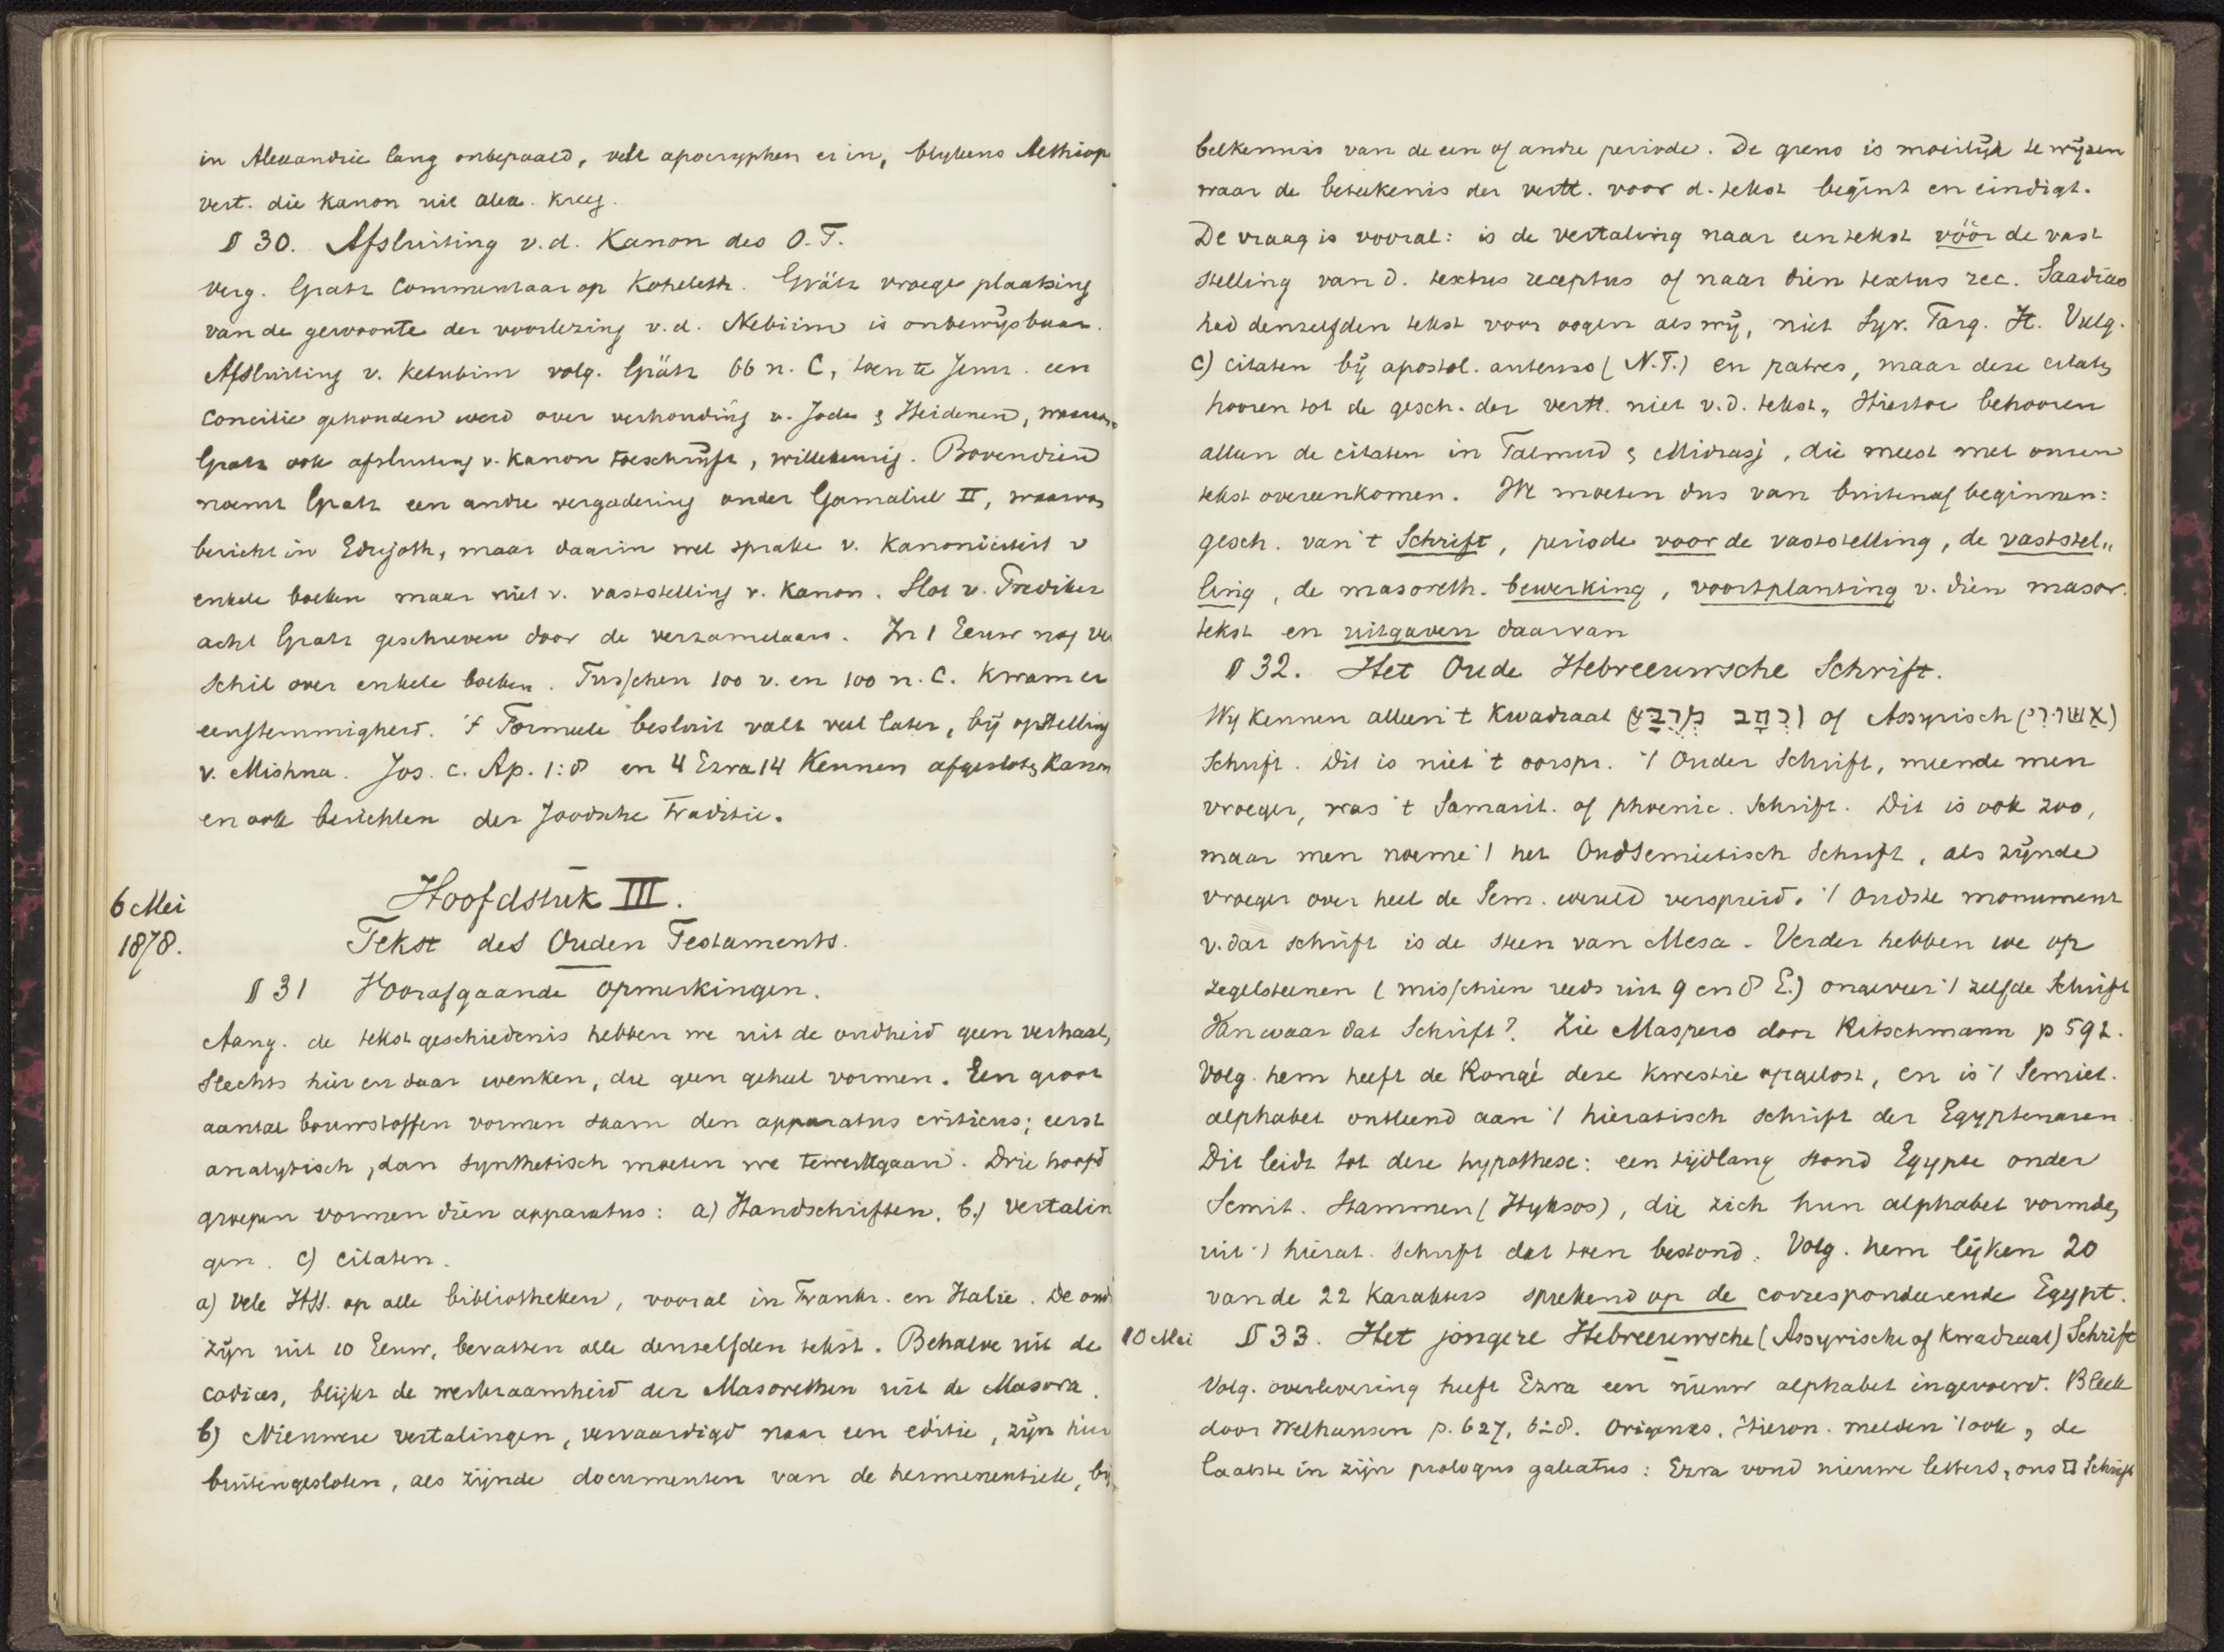 in Alexandrie lang onbepaald, vele apocryphen er in, blykens Aethiop
vert. die Kanon uit Alex. kreeg.
§ 30. Afsluiting v.d. Kanon des O.T.
Verg. Gratz Commentaar op Koheleth. Grätz vroege plaatsing
van de gewoonte der voorlezing v.d. Nebiim is onbewijsbaar.
Afsluiting v. Ketubim volg. Grätz 66 n. C, toen te Jeruz. een
Concilie gehouden werd over verhouding v. Joden & Heidenen, waaraan
Gratz ook afsluiting v. Kanon toeschrijft, willekeurig. Bovendien
noemt Gratz een andre vergadering onder Gamaliel II, waarvan
bericht in Edujoth, maar daarin wel sprake v. Kanoniciteit v
enkele boeken maar niet v. vaststelling v. Kanon. Slot v. Prediker
acht Gratz geschreven door de verzamelaars. In 1 Eeuw nog ver
schil over enkele boeken. Tusschen 100 v. en 100 n. C. kwam er
eenstemmigheid. 't Formeele besluit valt veel later, bij opstelling
v. Mishna. Jos. c. Ap. 1:8 en 4 Ezra 14 Kennen afgesloten Kanon
en ook berichten der Joodsche traditie.
6 Mei
1878.
Hoofdstuk III.
Tekst des Ouden Testaments.
§ 31 Voorafgaande opmerkingen.
Aang. de tekstgeschiedenis hebben we uit de oudheid geen verhaal,
Slechts hier en daar wenken, die geen geheel vormen. Een groot
aantal bouwstoffen vormen saam den apparatus criticus; eerst
analytisch, dan synthetisch moeten we tewerkgaan. Drie hoofd
groepen vormen dien apparatus: a) Handschriften. b.) Vertalin
gen. c) citaten.
a) Vele HSS. op alle bibliotheken, vooral in Frankr. en Italie. De oud
zijn uit 10 Eeuw, bevatten alle denzelfden tekst. Behalve uit de
codices, blijkt de werkzaamheid der Masorethen uit de Masora.
b) Nieuwere vertalingen, vervaardigd naar een editie, zijn hier
buitengesloten, als zijnde documenten van de hermeneutiek, bij
belkennis van de een of andre periode. De grens is moeilijk te wijzen
waar de beteekenis der vertt. voor d. tekst begint en eindigt.
De vraag is vooral: is de vertaling naar een tekst vóór de vast
stelling van d. textus receptus of naar dien textus rec. Saadias
had denzelfden tekst voor oogen als wij, niet Syr. Targ. It. Vulg.
c) citaten bij apostol. auteurs (N.T.) en patres, maar deze citaten
hooren tot de gesch. der vertt. niet v.d. tekst. Hiertoe behooren
alleen de citaten in Talmud & Midrasj, die meest met onzen
tekst overeenkomen. We moeten dus van buitenaf beginnen:
gesch. van 't Schrift, periode voor de vaststelling, de vaststel„
ling, de masoreth. bewerking, voortplanting v. dien masor.
tekst en uitgaven daarvan
§ 32. Het Oude Hebreeuwsche Schrift.
Wy kennen alleen 't Kwadraat (כְּתָב מְרֻבָּע) of Assyrisch (אַשּׁוּרִי)
Schrift. Dit is niet 't oorspr. 't Ouder Schrift, meende men
vroeger, was 't Samarit. of phoenic. Schrift. Dit is ook zoo,
maar men noeme 't het Oudsemietisch Schrift, als zijnde
vroeger over heel de Sem. wereld verspreid. 't Oudste monument
v. dat schrift is de steen van Mesa. Verder hebben we op
zegelsteenen (misschien reeds uit 9 en 8 E.) ongeveer 't zelfde Schrift
Van waar dat Schrift? Zie Maspero door Pitschmann p 592.
Volg. hem heeft de Rougé deze kwestie opgelost, en is 't Semiet.
alphabet ontleend aan 't hieratisch schrift der Egyptenaren
Dit leidt tot deze hypothese: een tijdlang stond Egypte onder
Semit. Stammen (Hyksos), die zich hun alphabet vormden
uit 't hierat. Schrift dat toen bestond. Volg. hem lijken 20
van de 22 Karakters sprekend op de correspondeerende Egypt.
10 Mei § 33. Het jongere Hebreeuwsche (Assyrische of Kwadraat) Schrift
Volg. overlevering heeft Ezra een nieuw alphabet ingevoerd. Bleek
door Welhausen p. 627, 628. Origenes, Hieron. melden 't ook, de
laatste in zijn prologus galeatus: Ezra vond nieuwe letters, ons □ Schrift